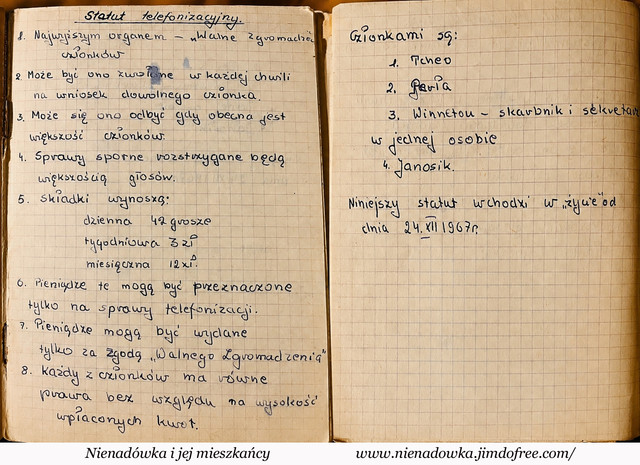 Statut telefonizacyjny.
1. Najwyższym organem – „Walne Zgromadzenie
członków
2. Może być ono zwołane w każdej chwili
na wniosek dowolnego członka.
3. Może się ono odbyć gdy obecna jest
większość członków.
4. Sprawy sporne rozstrzygane będą
większością głosów.
5. Składki wynoszą:
dzienna 42 grosze
tygodniowa 3 zł
miesięczna 12 zł.
6. Pieniądze te mogą być przeznaczone
tylko na sprawy telefonizacji.
7. Pieniądze mogą być wydane
tylko za zgodą „Walnego Zgromadzenia"
8. Każdy z członków ma równe
prawa bez względu na wysokość
wpłaconych kwot.
Członkami są:
1. Tcheo
2. Perła
3. Winnetou – skarbnik i sekretarz
w jednej osobie
4. Janosik.
Niniejszy statut wchodzi w „życie" od
dnia 24.XII 1967r.
Nienadówka i jej mieszkańcy
www.nienadowka.jimdofree.com/